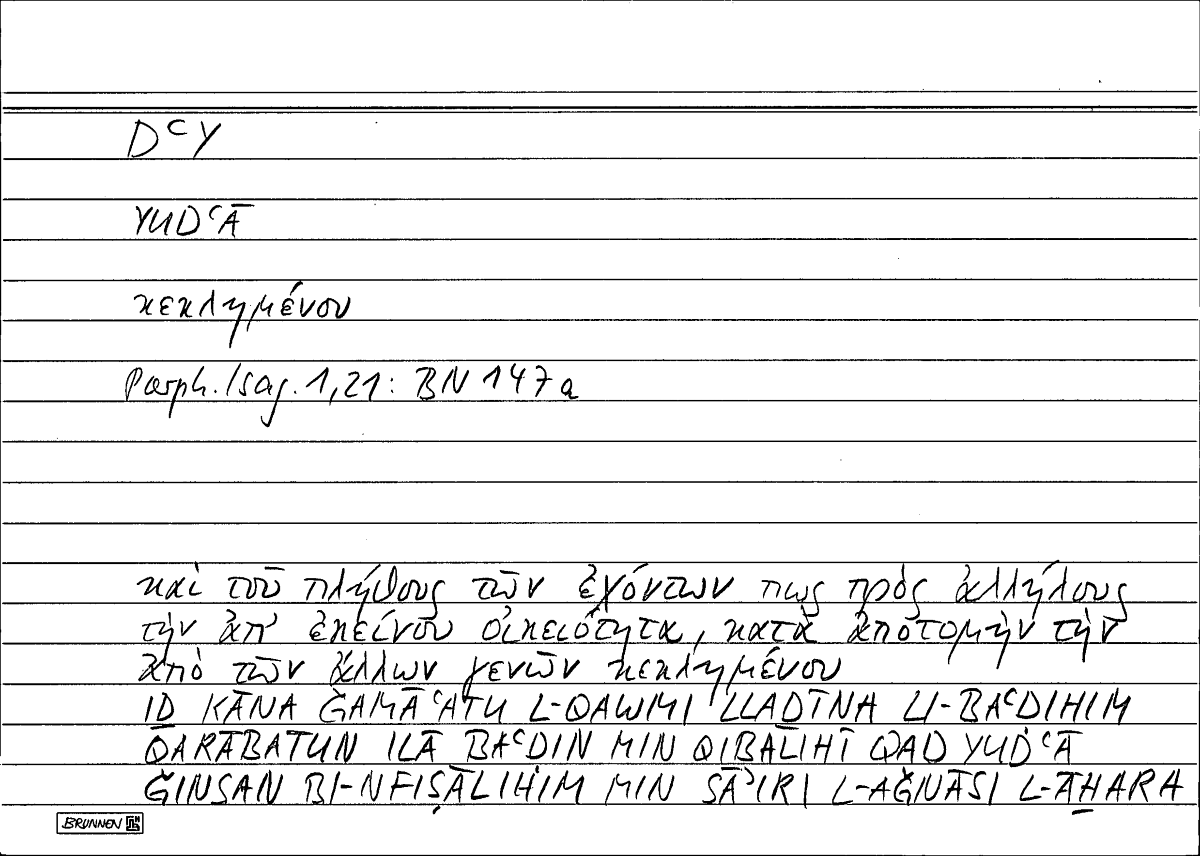 DᶜY
YUDᶜĀ
κεκλημένου
Porph. Isag. 1,21: BN 147a
καὶ τοῦ πλήθους τῶν ἐχόντων πως πρὸς ἀλλήλους
τὴν ἀπ' ἐκείνου οἰκειότητα, κατὰ ἀποτομὴν τὴν
ἀπὸ τῶν ἄλλων γενῶν κεκλημένου
IḎ KĀNA ǦAMĀᶜATU L-QAWMI LLAḎĪNA LI-BAᶜḌIHIM
QARĀBATUN ILĀ BAᶜḌIN MIN QIBALIHĪ QAD YUDᶜĀ
ǦINSAN BI-NFIṢĀLIHIM MIN SĀʾIRI L-AǦNĀSI L-ĀḪARA
BRUNNEN